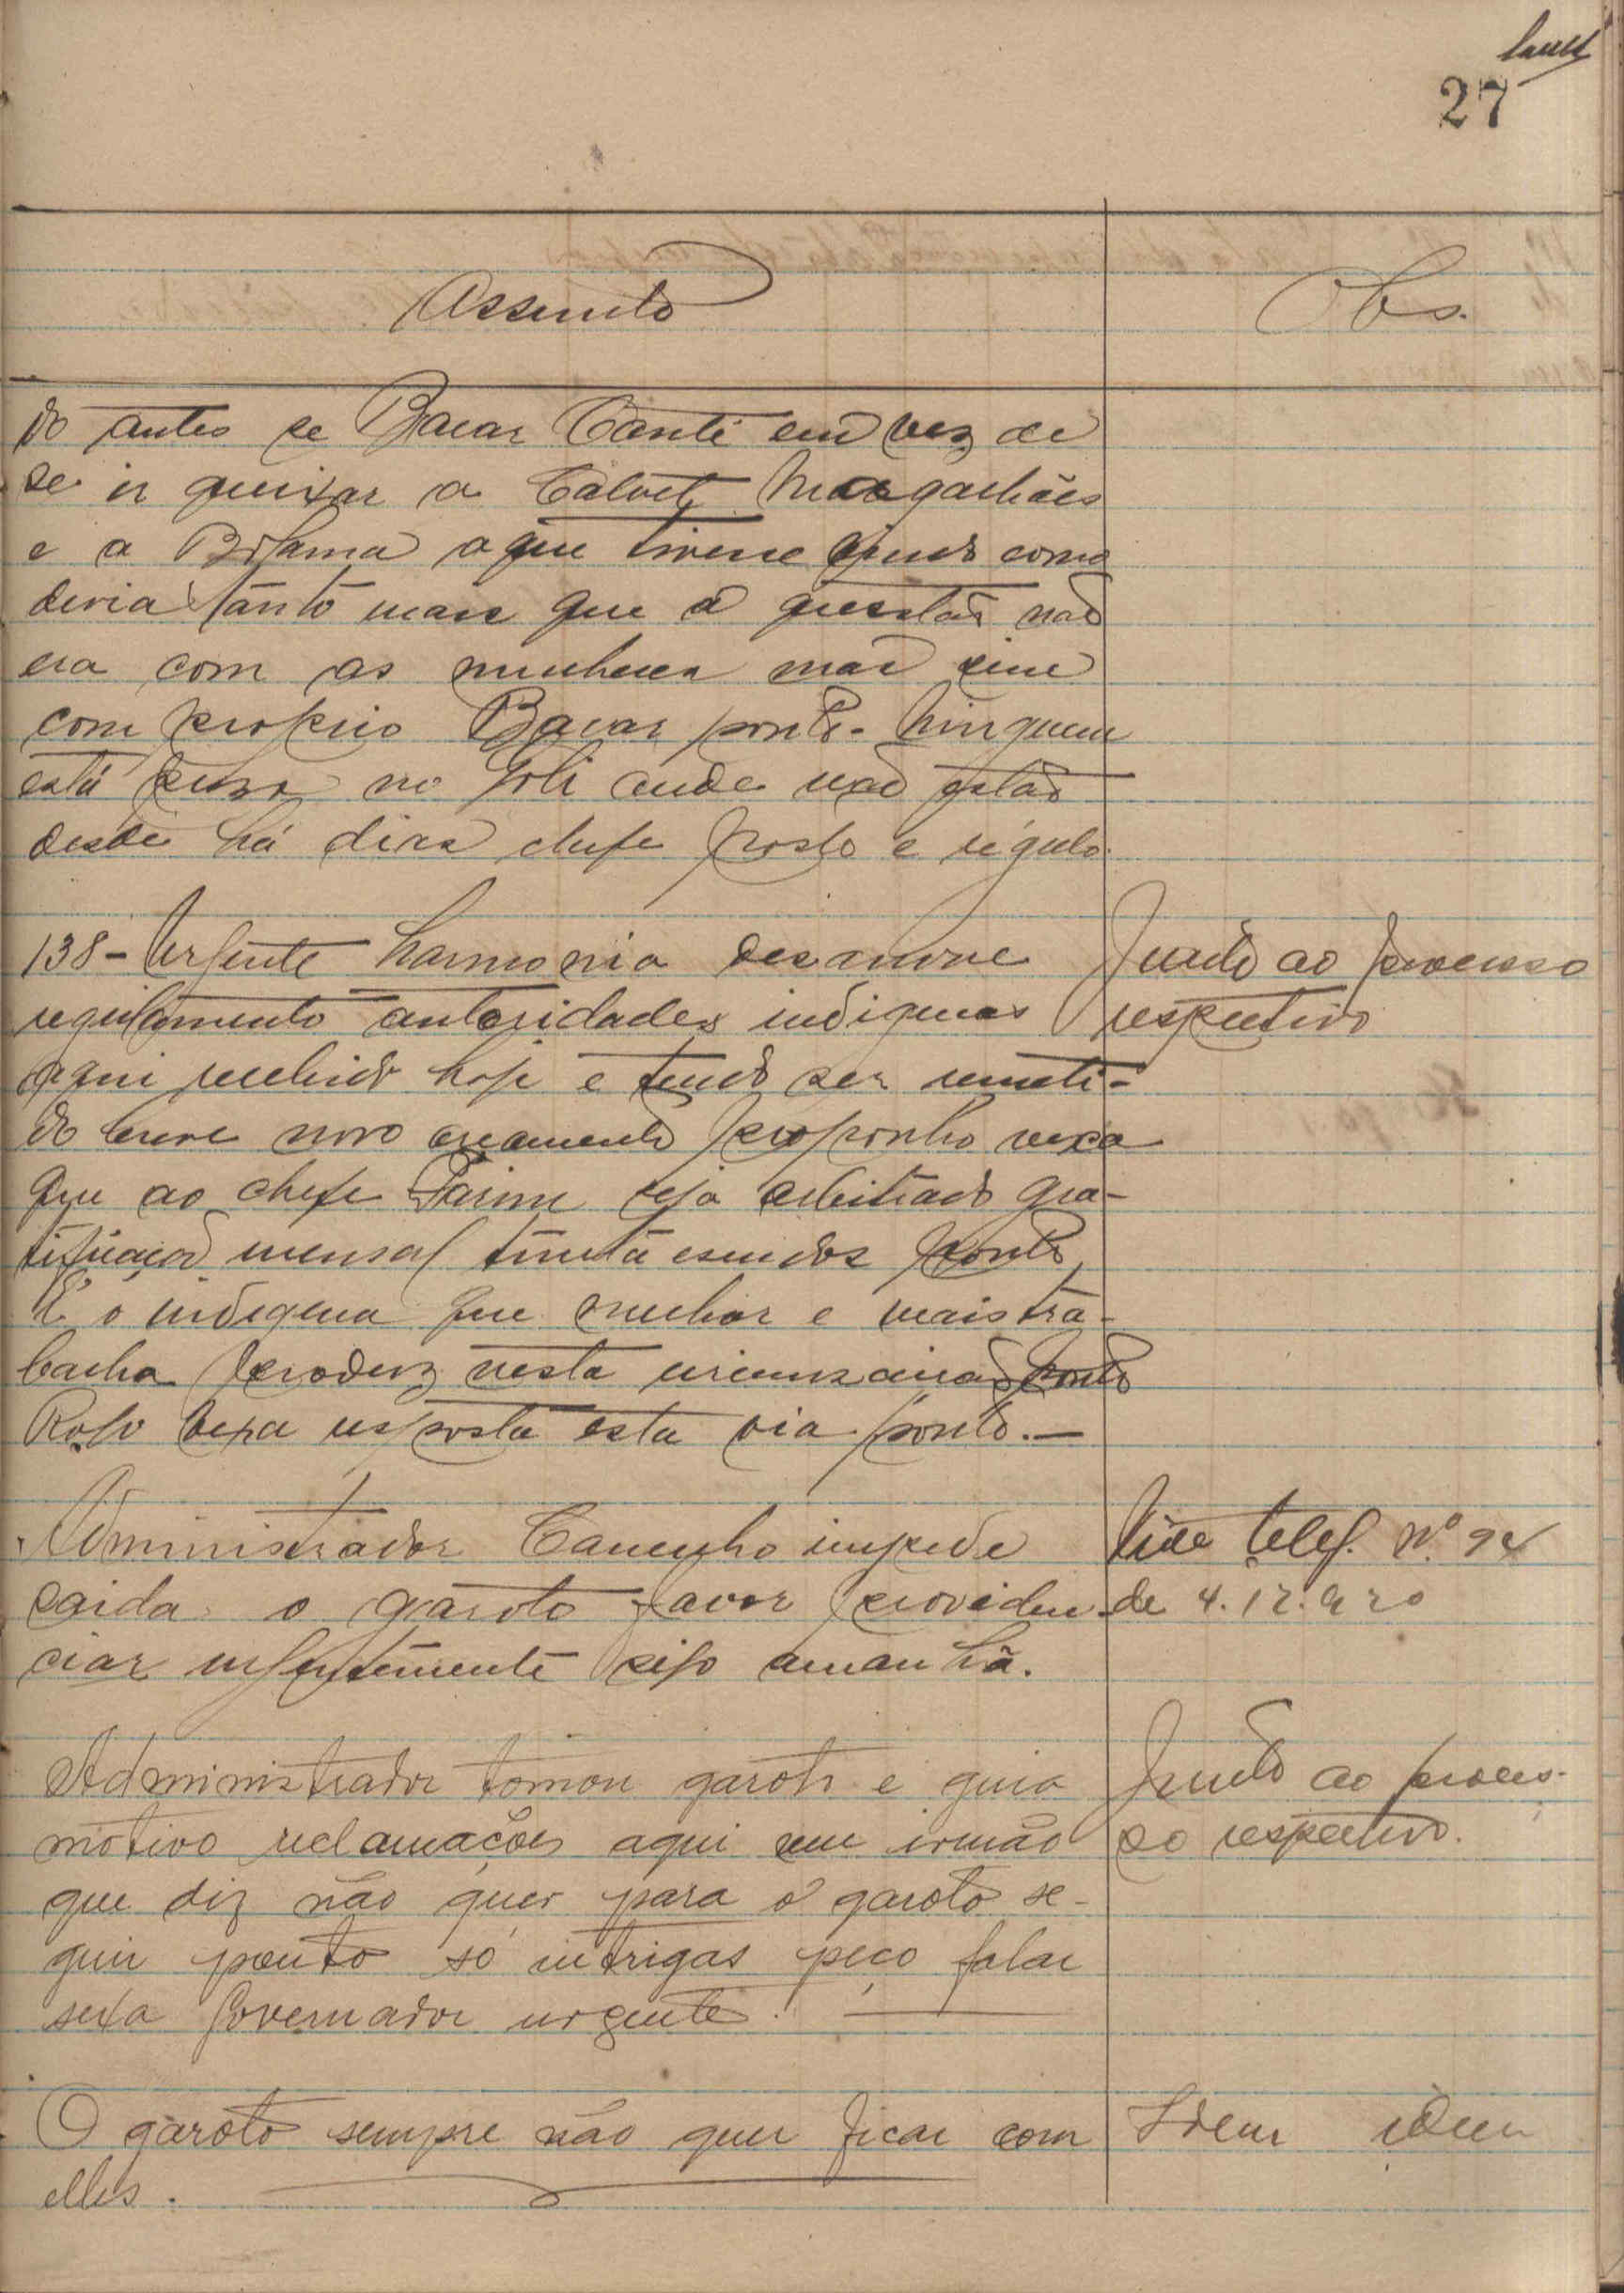 27
Assunto
Obs.
do antes se Bacar Canté em vez de
se ir queixar a Calvet Magalhães
e a Bolama aqui tivesse vindo como
devia tanto mais que a questão não
era com as mulheres mas sim
com proprio Bacar ponto. Ninguem
está preso no Goli onde não estão
desde há dias chefe posto e régulo.
138 - Urgente harmonia desanove
regulamento autoridades indigenas
aqui recebido hoje e tendo ser remeti-
do breve novo orçamento proponho vexa
que ao chefe seja arbitrado gra-
tificação mensal trinta escudos ponto
É o indigena que melhor e mais tra-
balha produz nesta circunscrição ponto
Rogo vexa resposta esta via ponto. —
Junto ao processo
respectivo
Administrador impede
saida o garoto favor providen-
ciar urgentemente sigo amanhã.
Vide telef. Nº 94
de 4.12.920
Administrador tomou garoto e guia
motivo reclamações aqui um irmão
que diz não quer para o garoto se-
guir ponto só intrigas peço falar
sexa Governador urgente. —
Junto ao proces-
so respectivo.
O garoto sempre não quer ficar com
elles.
Idem idem